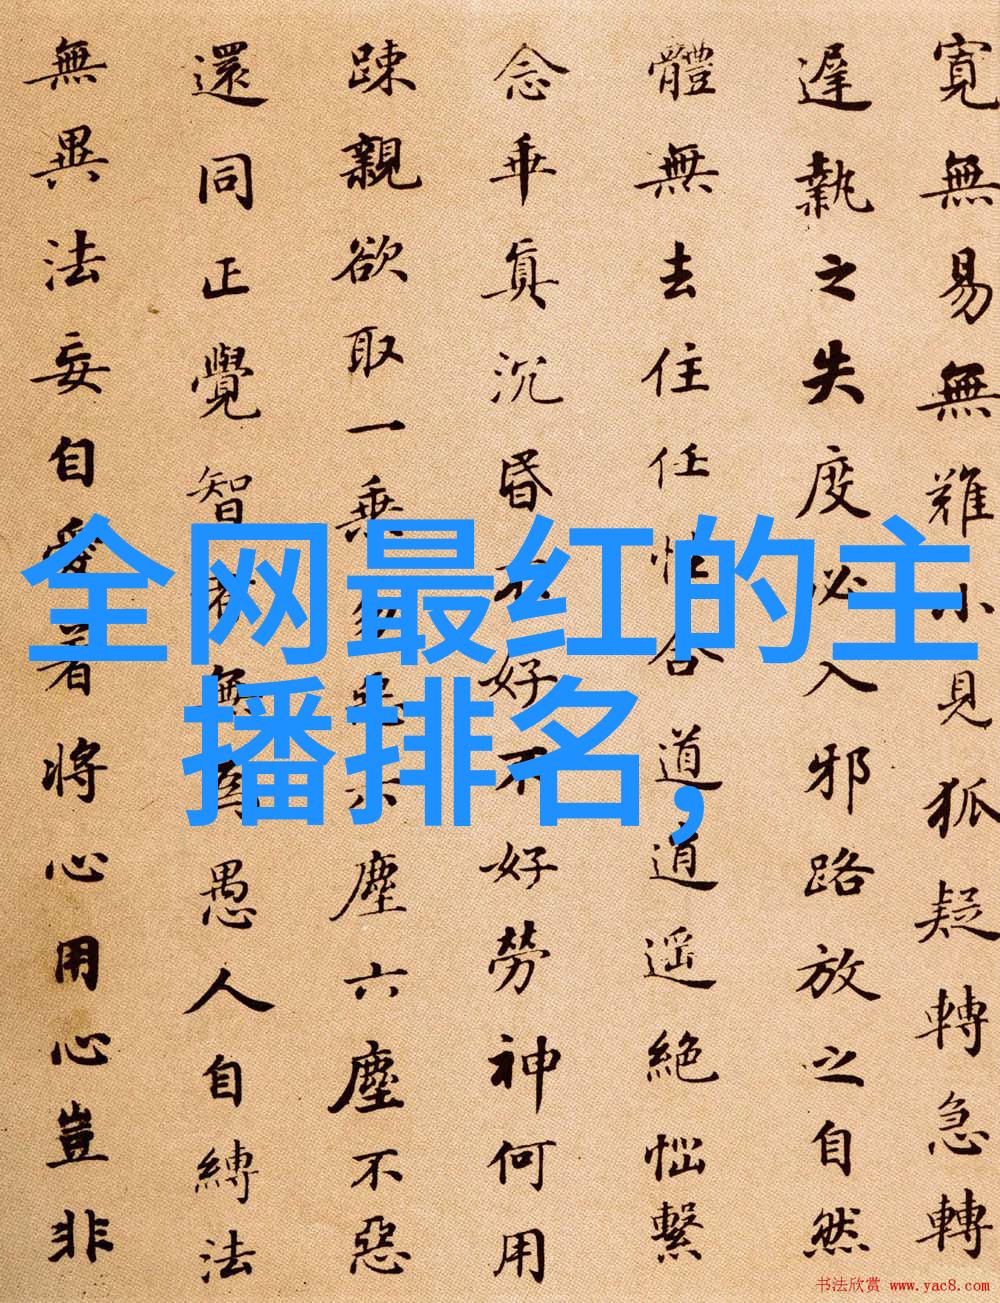 寬無易無難小見狐疑轉急轉
遲執之失度必入邪路放之自然
體無去住任性合道逍遥絕惱繫
念乖真沉昏不好不好勞神何用
踈親欲取一乘勿惡六塵六塵不惡
還同正覺智者無為愚人自縛法
無異法妄自愛著將心用心豈非
全网最红的主
播排名,
书法欣赏 www.yac8.com